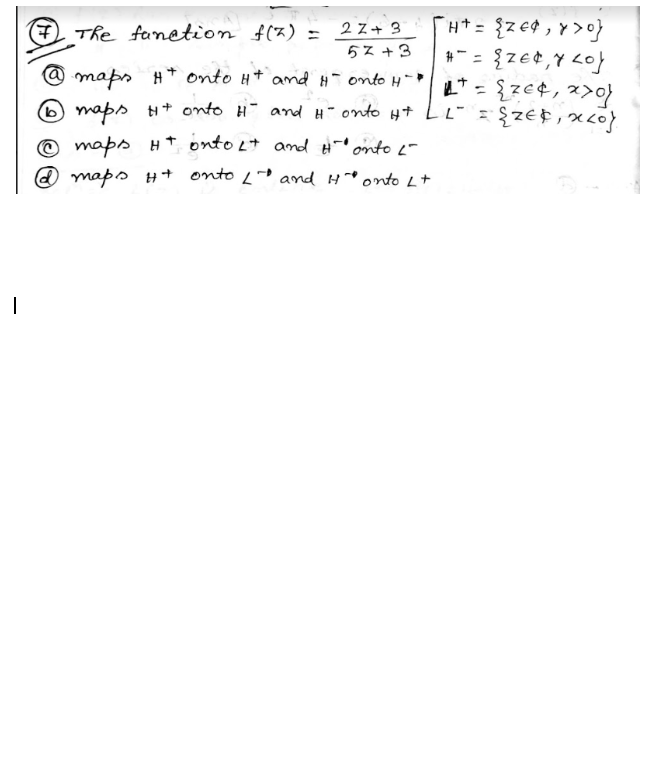 ⑦ The function f(z) = 2z+3 / 5z+3 [ H+ = {z∈¢, y>0}
H- = {z∈¢, y<0}
ⓐ maps H+ onto H+ and H- onto H- L+ = {z∈¢, x>0}
ⓑ maps H+ onto H- and H- onto H+ L- = {z∈¢, x<0}
ⓒ maps H+ onto L+ and H- onto L-
ⓓ maps H+ onto L- and H- onto L+